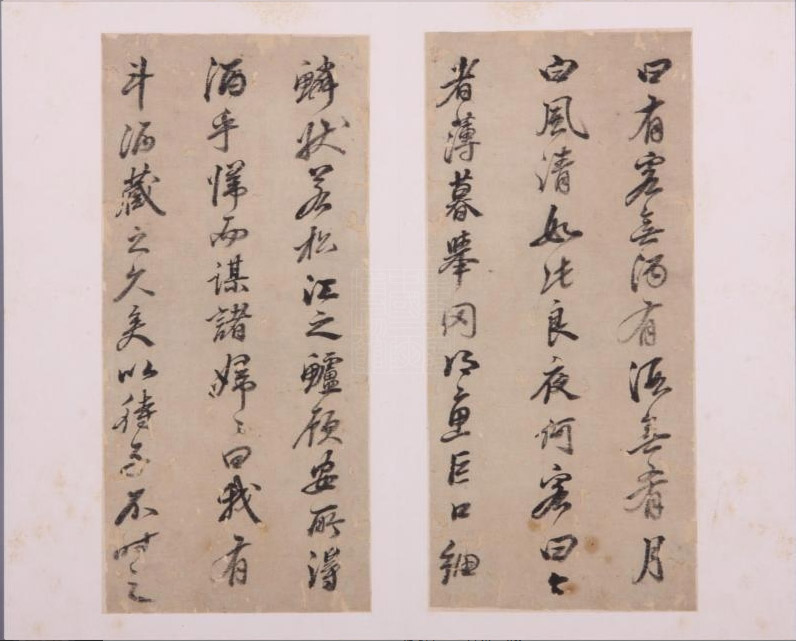 曰有客無酒有酒無肴月
白風清如此良夜何客曰今
者薄暮舉网得魚巨口細
鱗狀若松江之鱸顧安所得
酒乎歸而謀諸婦〻曰我有
斗酒藏之久矣以待子不時之